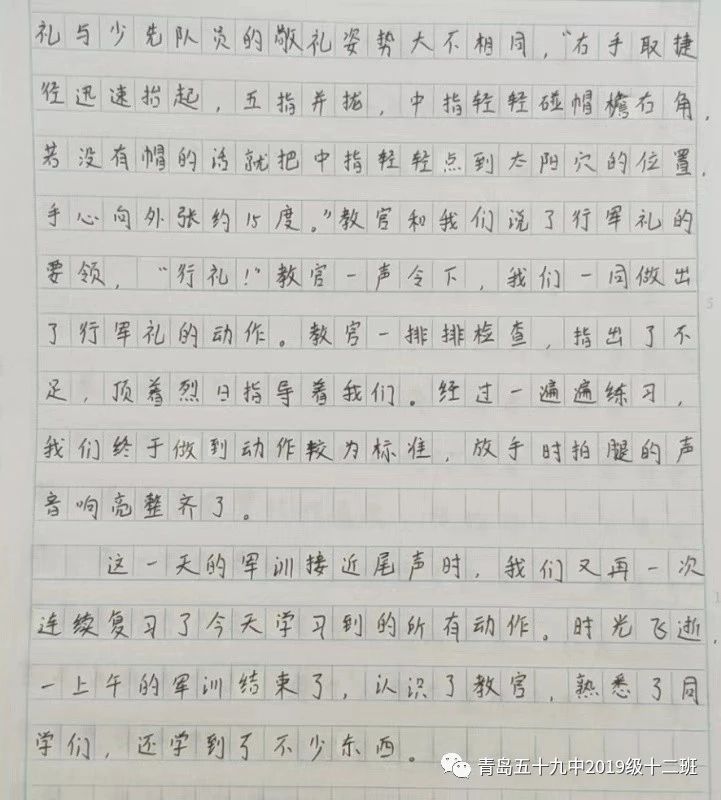 礼与少先队员的敬礼姿势大不相同，“右手取捷
径迅速抬起，五指并拢，中指轻轻碰帽檐右角，
若没有帽的话就把中指轻轻点到太阳穴的位置，
手心向外张约15度。”教官和我们说了行军礼的
要领，“行礼！”教官一声令下，我们一同做出
了行军礼的动作。教官一排排检查，指出了不
足，顶着烈日指导着我们。经过一遍遍练习，
我们终于做到动作较为标准，放手时拍腿的声
音响亮整齐了。
这一天的军训接近尾声时，我们又再一次
连续复习了今天学习到的所有动作。时光飞逝，
一上午的军训结束了，认识了教官，熟悉了同
学们，还学到了不少东西。
青岛五十九中2019级十二班